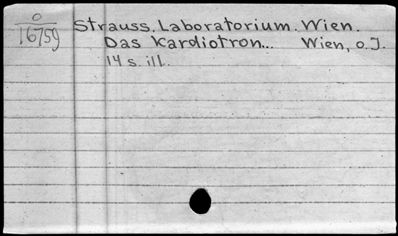 O
16759
Strauss. Laboratorium. Wien.
Das Kardiotron... Wien, o.J.
14 s. ill.